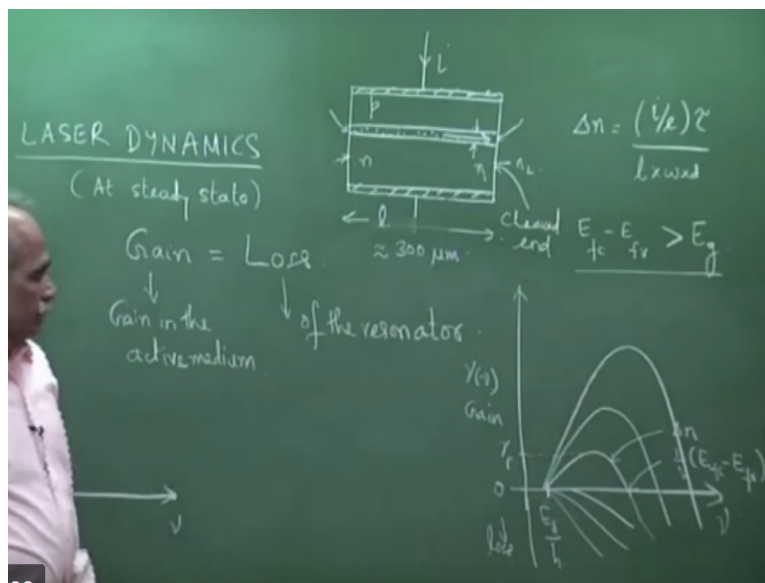 LASER DYNAMICS
(At steady state)
Gain = Loss
Gain in the
active medium
of the resonator.
i
p
n
l
≈ 300 μm
n₁
n₂
cleaved
end
Δn = (i/e)τ
l×w×d
E_fc - E_fv > E_g
γ(ν)
Gain
γ_r
0
loss
E_g
h
Δn
(E_fc - E_fv)
ν
ν